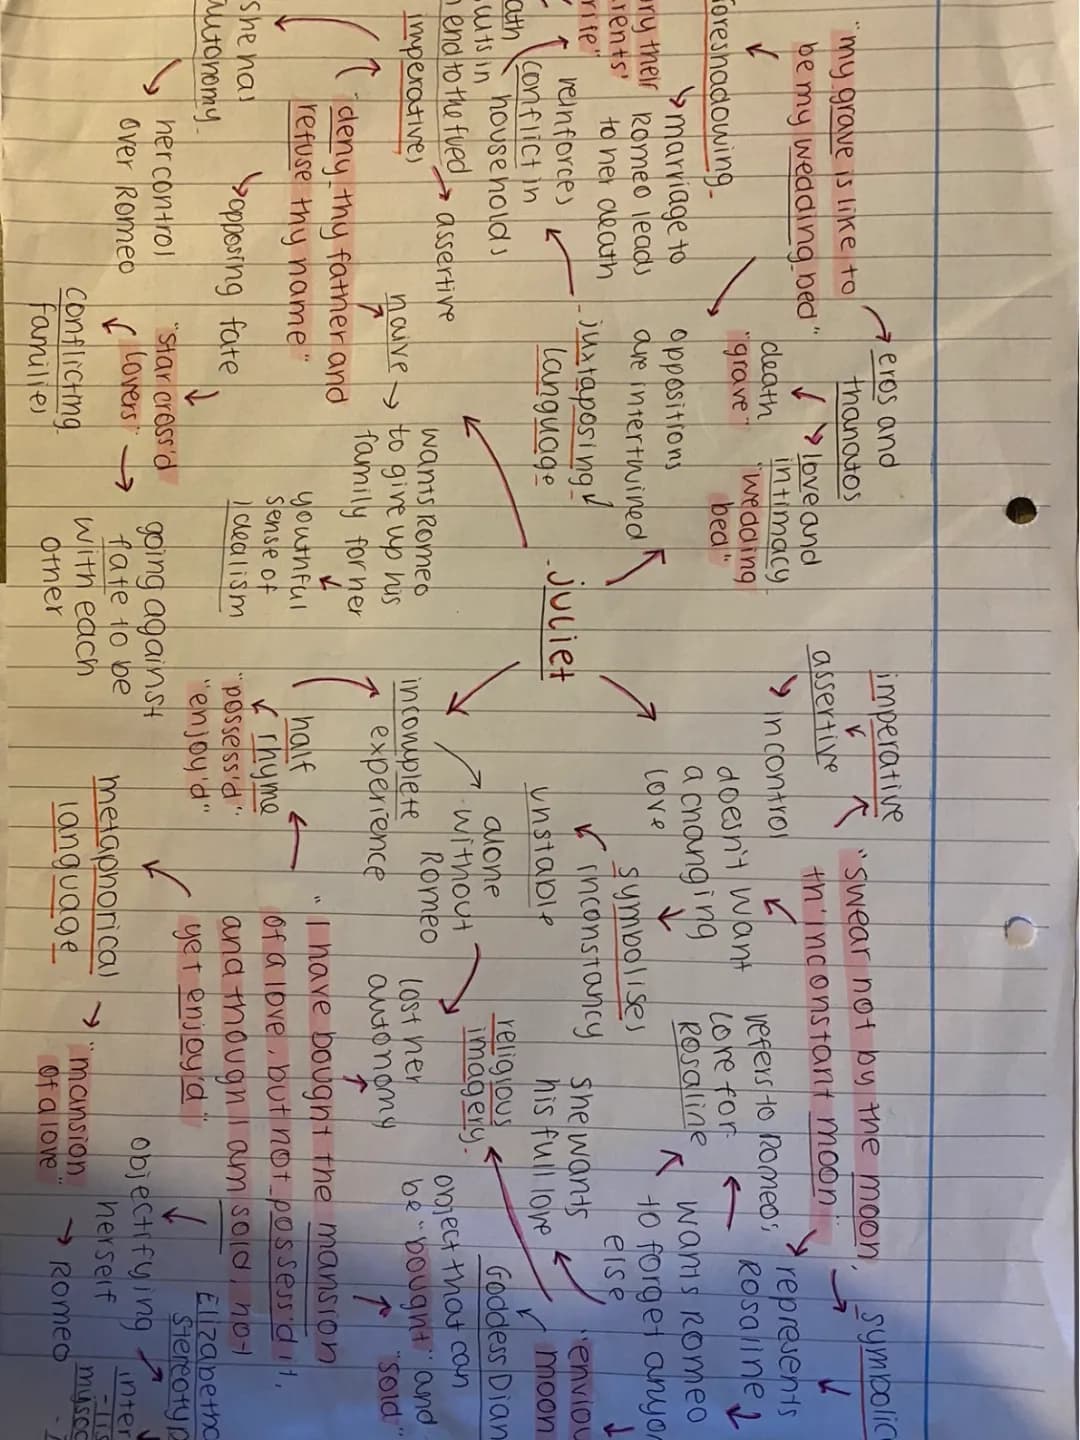 "my grave is like to
be my wedding bed"
foreshadowing
marriage to
Romeo leads
to her death
eros and
thanatos
death
"grave"
love and
intimacy
"wedding
bed"
oppositions
are intertwined
juxtaposing
language
reinforces
conflict in
households
ry their
rents'
end to the fued
imperatives
assertive
"deny thy father and
refuse thy name"
she has
autonomy
her control
over Romeo
opposing fate
"star cross'd
lovers"
conflicting
families
going against
fate to be
with each
other
naive
wants Romeo
to give up his
family for her
youthful
sense of
idealism
juliet
imperative
assertive
in control
"swear not by the moon,
th'inconstant moon"
doesn't want
a changing
love
symbolises
inconstancy
unstable
symbolic
represents
Rosaline
refers to Romeo's
love for
Rosaline
wants Romeo
to forget anyo
else
she wants
his full love
"enviou
moon
Goddess Dian
religious
imagery
alone
without
Romeo
incomplete
experience
half
rhyme
"possess'd"
"enjoy'd"
"I have bought the mansion
of a love, but not possess'd it,
and though I am sold, not
yet enjoy'd"
lost her
autonomy
object that can
be "bought" and
"sold"
metaphorical
language
"mansion
of a love"
Romeo
objectifying
herself
Elizabetha
stereotyp
inter